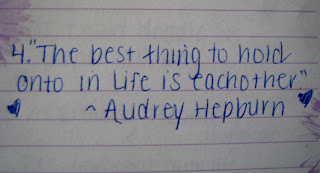 4."The best thing to hold
onto in life is eachother."
~ Audrey Hepburn